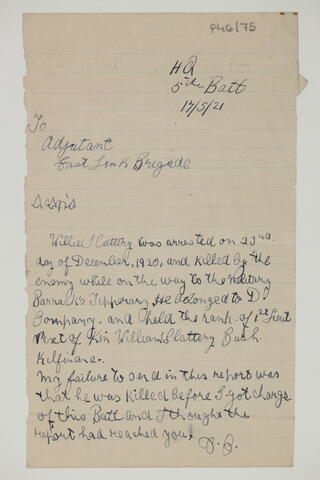 P46/75
HQ
5th Batt
17/5/21
To
Adjutant
East Limk Brigade
Willie Slattery was arrested on 23rd
day of December, 1920, and killed by the
enemy while on the way to the Military
Barracks Tipperary. He belonged to D
Company. and held the rank of 1st Lieut
Next of Kin William Slattery Bush.
Kilfinane.
My failure to send in this report was
that he was killed before I got charge
of this Batt and I thought the
report had reached you.